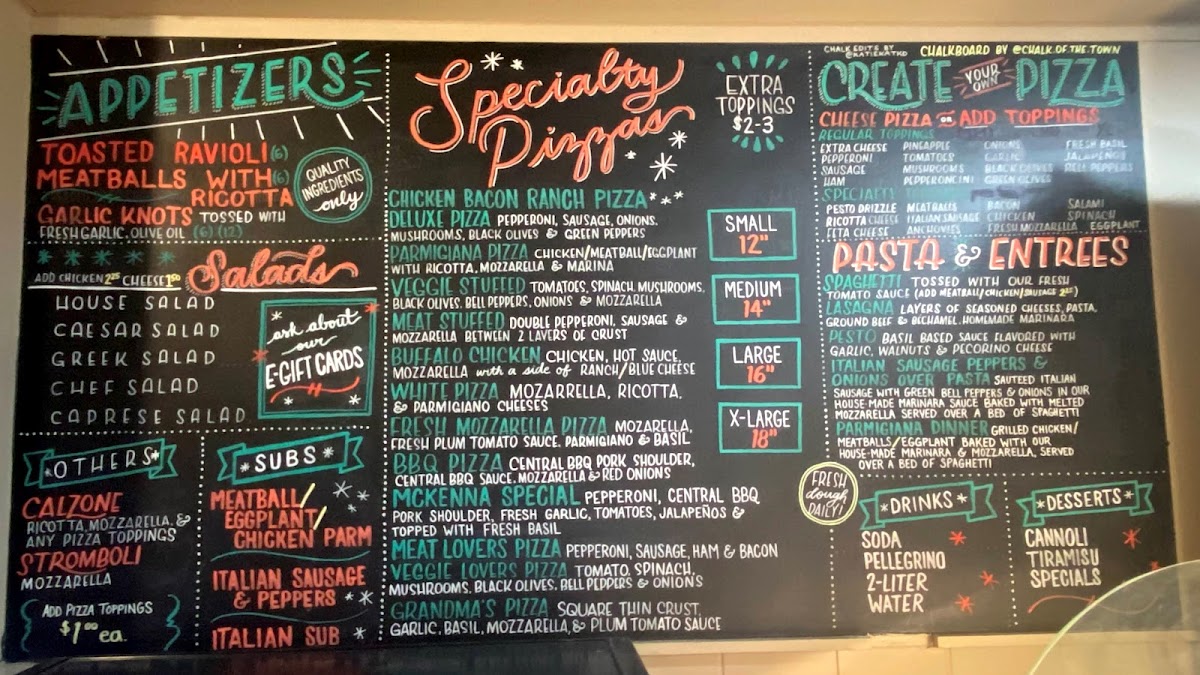 APPETIZERS
TOASTED RAVIOLI (6)
MEATBALLS WITH (6)
RICOTTA
GARLIC KNOTS TOSSED WITH
FRESH GARLIC, OLIVE OIL (6) (12)
QUALITY
INGREDIENTS
only
ADD CHICKEN 2.25 CHEESE 1.50
Salads
HOUSE SALAD
CAESAR SALAD
GREEK SALAD
CHEF SALAD
CAPRESE SALAD
ask about
our
E-GIFT CARDS
*OTHERS*
CALZONE
RICOTTA, MOZZARELLA, &
ANY PIZZA TOPPINGS
STROMBOLI
MOZZARELLA
ADD PIZZA TOPPINGS
$1.00 ea.
*SUBS*
MEATBALL/
EGGPLANT/
CHICKEN PARM
ITALIAN SAUSAGE
& PEPPERS
ITALIAN SUB
Specialty
Pizzas
EXTRA
TOPPINGS
$2-3
CHICKEN BACON RANCH PIZZA
DELUXE PIZZA PEPPERONI, SAUSAGE, ONIONS,
MUSHROOMS, BLACK OLIVES & GREEN PEPPERS
PARMIGIANA PIZZA CHICKEN/MEATBALL/EGGPLANT
WITH RICOTTA, MOZZARELLA & MARINA
VEGGIE STUFFED TOMATOES, SPINACH, MUSHROOMS,
BLACK OLIVES, BELL PEPPERS, ONIONS & MOZZARELLA
MEAT STUFFED DOUBLE PEPPERONI, SAUSAGE &
MOZZARELLA BETWEEN 2 LAYERS OF CRUST
BUFFALO CHICKEN CHICKEN, HOT SAUCE,
MOZZARELLA with a side of RANCH/BLUE CHEESE
WHITE PIZZA MOZARRELLA, RICOTTA,
& PARMIGIANO CHEESES
FRESH MOZZARELLA PIZZA MOZARELLA,
FRESH PLUM TOMATO SAUCE, PARMIGIANO & BASIL
BBQ PIZZA CENTRAL BBQ PORK SHOULDER,
CENTRAL BBQ SAUCE, MOZZARELLA & RED ONIONS
MCKENNA SPECIAL PEPPERONI, CENTRAL BBQ
PORK SHOULDER, FRESH GARLIC, TOMATOES, JALAPEÑOS &
TOPPED WITH FRESH BASIL
MEAT LOVERS PIZZA PEPPERONI, SAUSAGE, HAM & BACON
VEGGIE LOVERS PIZZA TOMATO, SPINACH,
MUSHROOMS, BLACK OLIVES, BELL PEPPERS & ONIONS
GRANDMA'S PIZZA SQUARE THIN CRUST,
GARLIC, BASIL, MOZZARELLA, & PLUM TOMATO SAUCE
SMALL
12"
MEDIUM
14"
LARGE
16"
X-LARGE
18"
CHALK EDITS BY
@KATIEKATKD
CHALKBOARD BY @CHALK.OF.THE.TOWN
CREATE YOUR OWN PIZZA
CHEESE PIZZA OR ADD TOPPINGS
REGULAR TOPPINGS
EXTRA CHEESE PINEAPPLE ONIONS FRESH BASIL
PEPPERONI TOMATOES GARLIC JALAPEÑOS
SAUSAGE MUSHROOMS BLACK OLIVES BELL PEPPERS
HAM PEPPERONCINI GREEN OLIVES
SPECIALTY
PESTO DRIZZLE MEATBALLS BACON SALAMI
RICOTTA CHEESE ITALIAN SAUSAGE CHICKEN SPINACH
FETA CHEESE ANCHOVIES FRESH MOZZARELLA EGGPLANT
PASTA & ENTREES
SPAGHETTI TOSSED WITH OUR FRESH
TOMATO SAUCE (ADD MEATBALL/CHICKEN/SAUSAGE 2.25)
LASAGNA LAYERS OF SEASONED CHEESES, PASTA,
GROUND BEEF & BECHAMEL, HOMEMADE MARINARA
PESTO BASIL BASED SAUCE FLAVORED WITH
GARLIC, WALNUTS & PECORINO CHEESE
ITALIAN SAUSAGE PEPPERS &
ONIONS OVER PASTA SAUTEED ITALIAN
SAUSAGE WITH GREEN BELL PEPPERS & ONIONS IN OUR
HOUSE-MADE MARINARA SAUCE BAKED WITH MELTED
MOZZARELLA SERVED OVER A BED OF SPAGHETTI
PARMIGIANA DINNER GRILLED CHICKEN/
MEATBALLS/EGGPLANT BAKED WITH OUR
HOUSE-MADE MARINARA & MOZZARELLA, SERVED
OVER A BED OF SPAGHETTI
FRESH
dough
DAILY!
*DRINKS*
SODA
PELLEGRINO
2-LITER
WATER
*DESSERTS*
CANNOLI
TIRAMISU
SPECIALS